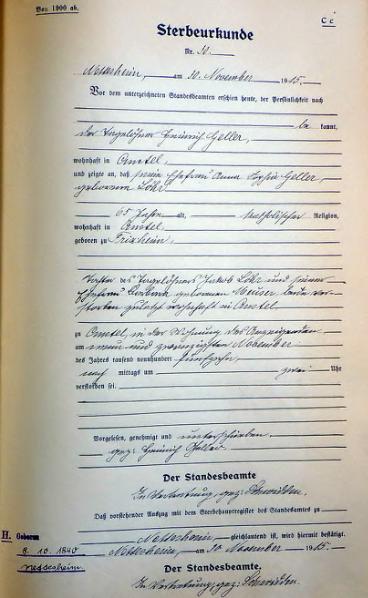 Von 1900 ab.
C c
Sterbeurkunde
Nr. 30.
Nettersheim, am 30. November 1915.
Vor dem unterzeichneten Standesbeamten erschien heute, der Persönlichkeit nach
be kannt,
der Tagelöhner Heinrich Geller,
wohnhaft in
und zeigte an, daß seine Ehefrau Anna Geller,
geborene Löhr
65 Jahre alt, katholischer Religion,
wohnhaft in
geboren zu
Tochter des Tagelöhners Jakob Löhr und seiner
Ehefrau geborenen beide ver-
storben zuletzt wohnhaft in
zu in der Wohnung des Anzeigenden
am neun und zwanzigsten November
des Jahres tausend neunhundert fünfzehn
nach mittags um zwei Uhr
verstorben sei.
Vorgelesen, genehmigt und unterschrieben.
gez. Heinrich Geller
Der Standesbeamte
In Vertretung gez.
Daß vorstehender Auszug mit dem Sterbehauptregister des Standesamtes zu
Nettersheim gleichlautend ist, wird hiermit bestätigt.
H. Geboren
8. 10. 1840
Nettersheim, am 30 November 1915.
Der Standesbeamte.
In Vertretung: gez.